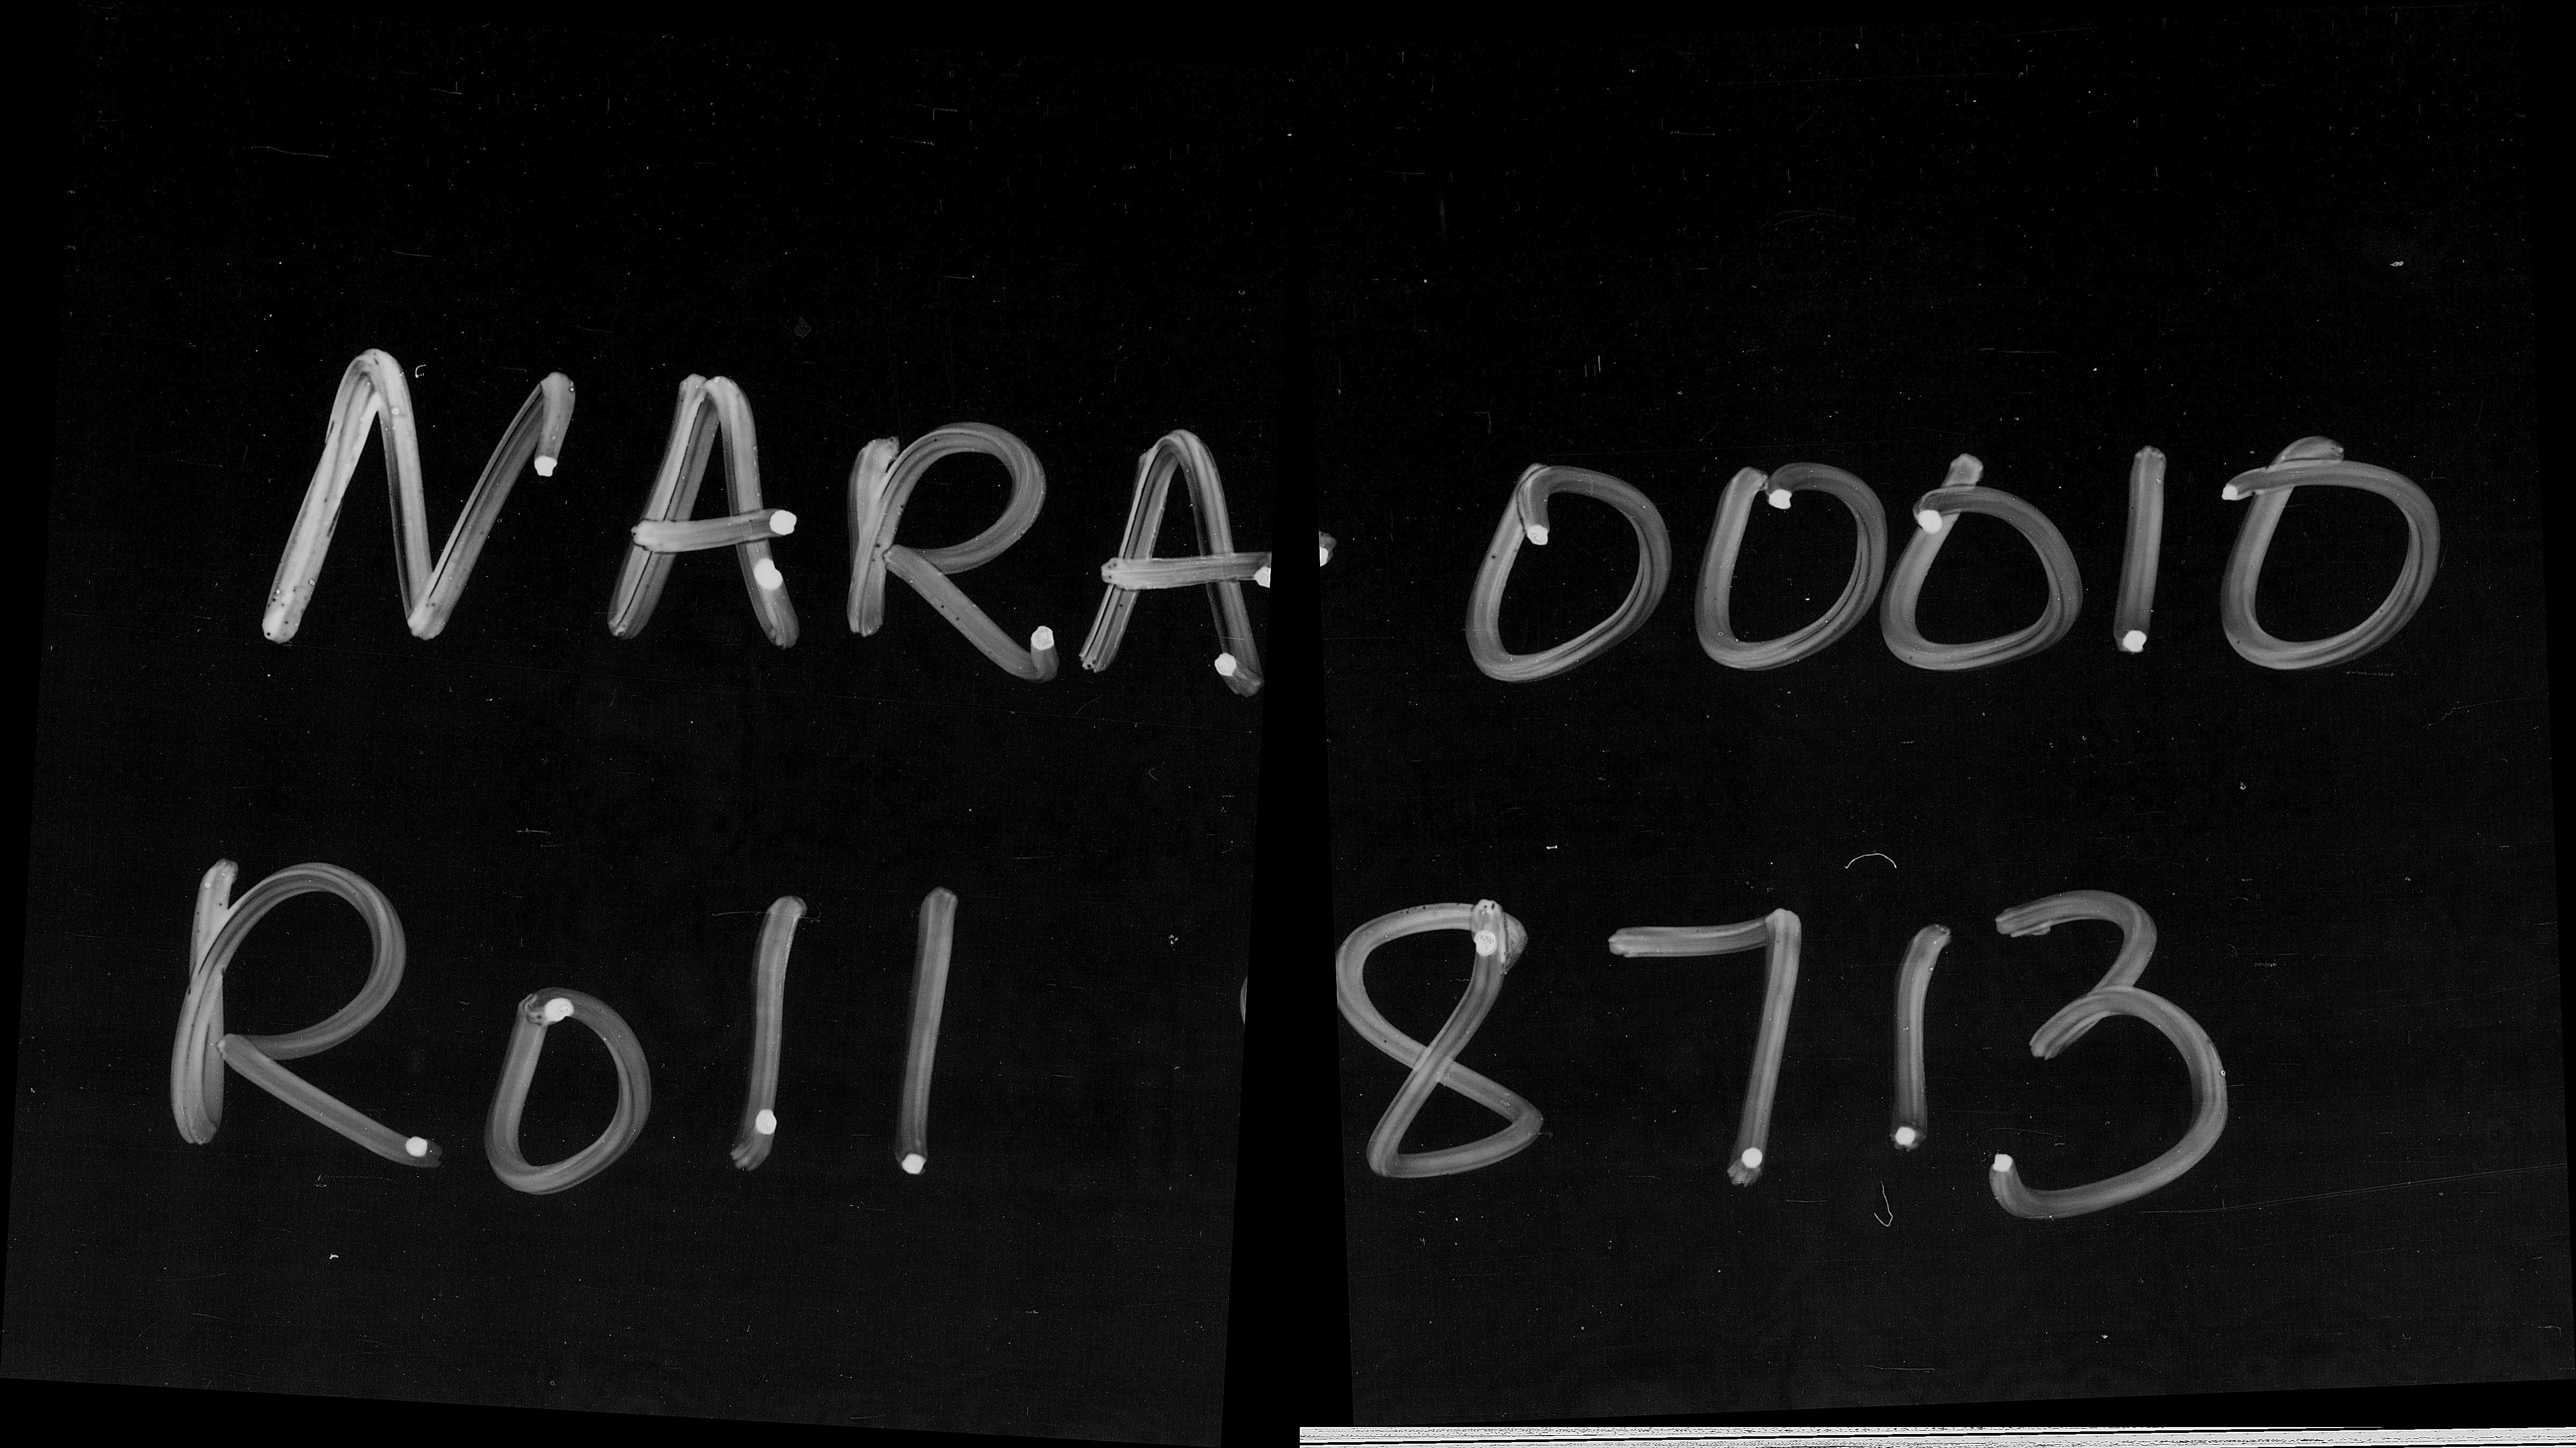 NARA 00010
Roll 8713